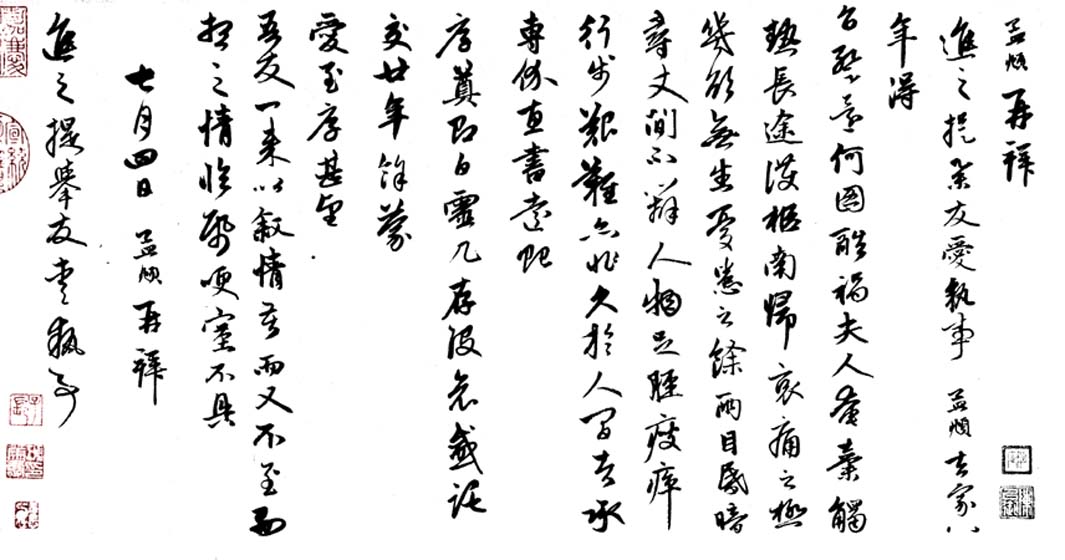 孟頫再拜
進之提舉友愛執事孟頫去家八
年得
旨暫還何圖酷禍夫人奄棄觸
熱長途護柩南歸哀痛之極
幾欲無生憂患之餘兩目昏暗
尋丈間不辨人物足脛瘦瘁
行步艱難亦非久於人間者承
專价惠書遠貺
厚奠即白靈几存沒哀感託
交廿年餘蒙
愛至厚甚望
吾友一來以敘情苦而又不至
之情臨紙哽塞不具
七月四日孟頫再拜
進之提舉友愛執事